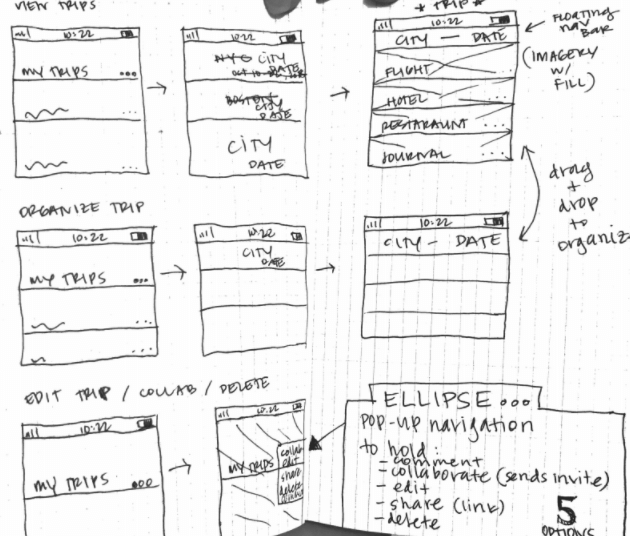 VIEW TRIPS
10:22
MY TRIPS ...
...
...
10:22
NYC CITY
OCT 10- DATE
BOSTON
CITY
DATE
CITY
DATE
* TRIP *
10:22
CITY — DATE
FLIGHT
HOTEL
RESTARAUNT ...
JOURNAL ...
FLOATING
NAV
BAR
(IMAGERY
W/
FILL)
drag
+
drop
to
organize
ORGANIZE TRIP
10:22
MY TRIPS ...
...
...
10:22
CITY
DATE
10:22
CITY - DATE
EDIT TRIP / COLLAB / DELETE
10:22
MY TRIPS ...
10:22
MY TRIPS
collab
edit
share
delete
ELLIPSE ...
POP-UP navigation
to hold:
- comment
- collaborate (sends invite)
- edit
- share (link)
- delete
5
OPTIONS